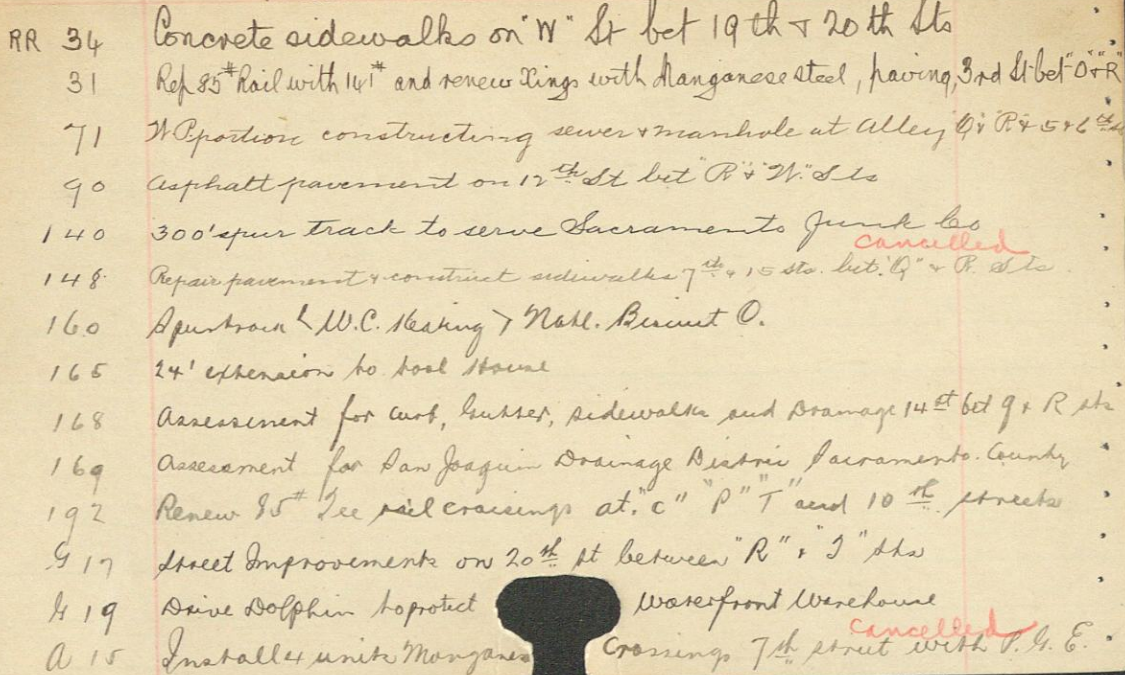 RR 34 Concrete sidewalks on "W" St bet 19th & 20th Sts
31 Rep 85# Rail with 141# and renew Xings with Manganese steel, paving, 3rd St bet "O" & "R"
71 W P. portion constructing sewer & manhole at Alley Q & R & 5 & 6th
90 Asphalt pavement on 12th St bet "R" & "W" Sts
140 300' spur track to serve Sacramento Junk Co
cancelled
148 Repair pavement & construct sidewalks 7th & 15 sts. bet. "Q" & R. Sts
160 Spurtrack W.C. Keating Natl. Biscuit
165 24' extension to tool House
168 Assessment for curb, Gutter, sidewalks and Drainage 14st bet Q & R sts
169 Assessment for San Joaquin Drainage Distric Sacramento County
192 Renew 85# Tee rail crossings at "C" "P" "T" and 10th streets
G 17 Street Improvements on 20th St between "R" & "J" Sts
G 19 Drive Dolphin to protect Waterfront Warehouse
cancelled
A 15 Install 4 units Manganes Crossings 7th street with P. G. E.